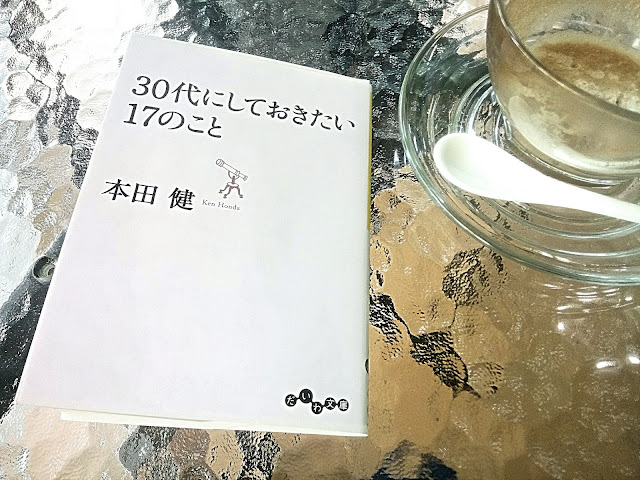 30代にしておきたい
17のこと
本田 健
Ken Honda
だいわ文庫